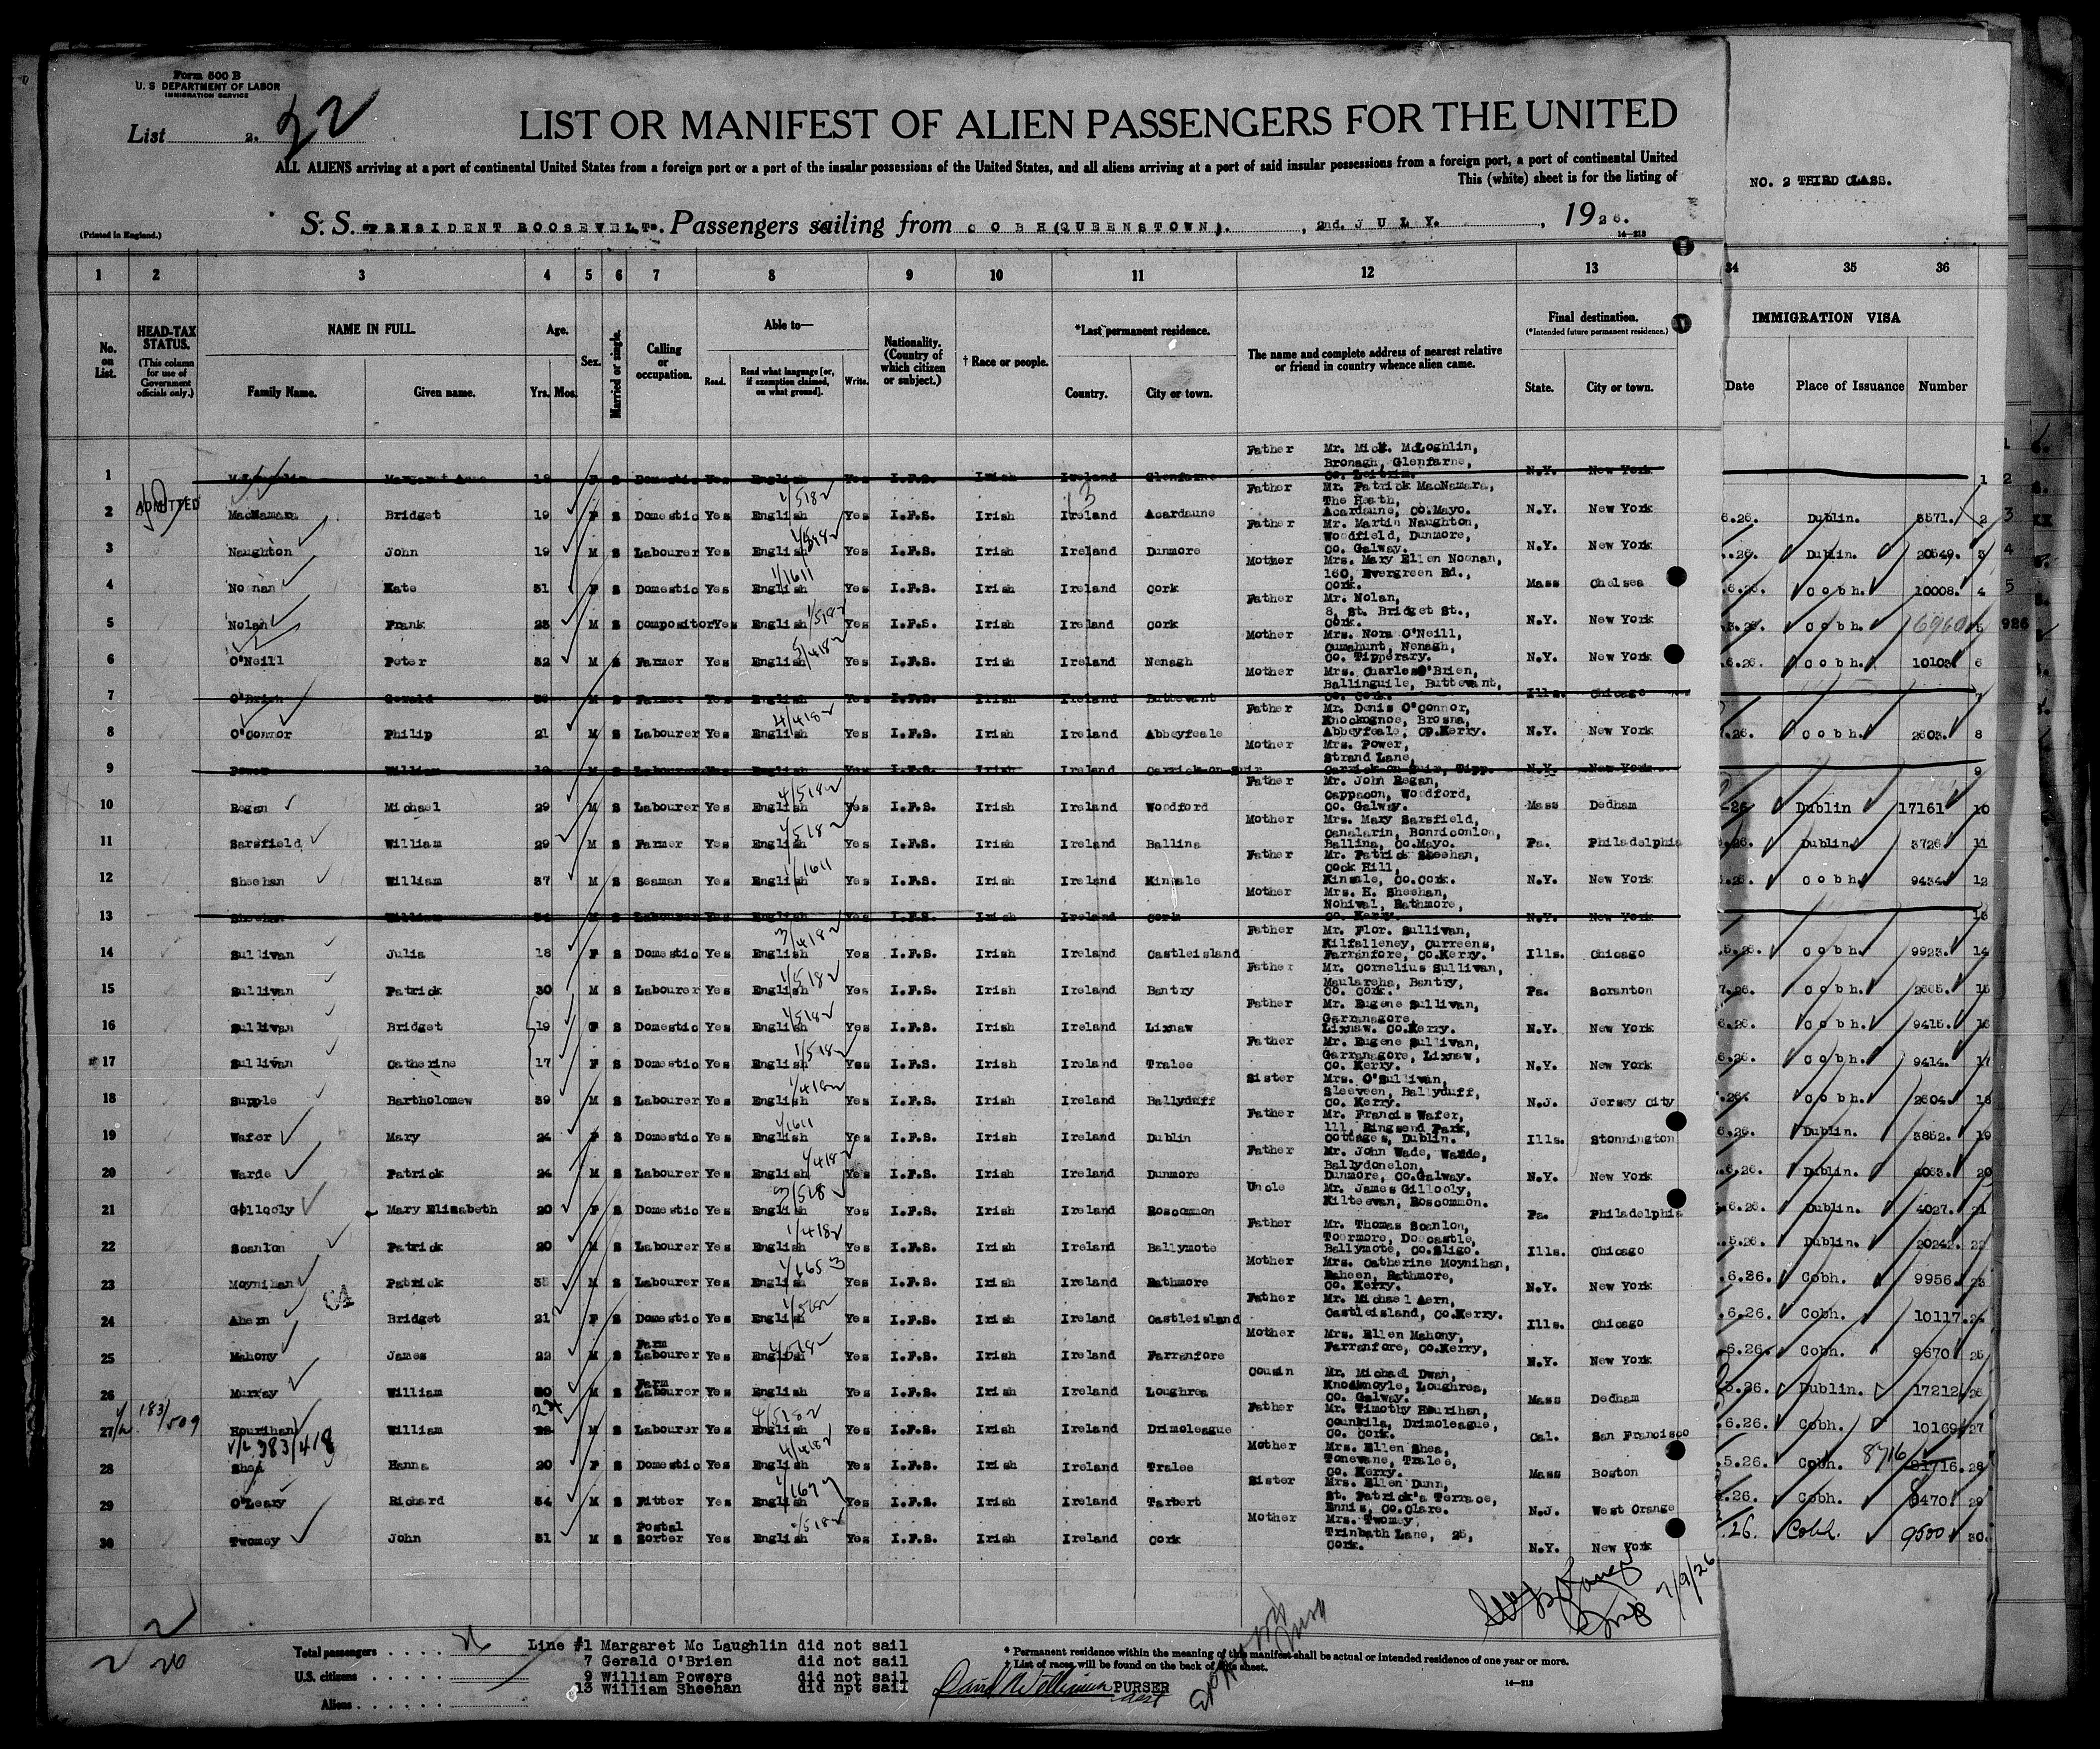 Form 500 B
U. S. DEPARTMENT OF LABOR
IMMIGRATION SERVICE
List 2. 32
LIST OR MANIFEST OF ALIEN PASSENGERS FOR THE UNITED
ALL ALIENS arriving at a port of continental United States from a foreign port or a port of the insular possessions of the United States, and all aliens arriving at a port of said insular possessions from a foreign port, a port of continental United
This (white) sheet is for the listing of
NO. 2 THIRD CLASS.
(Printed in England.)
S. S. "PRESIDENT ROOSEVELT". Passengers sailing from COBH (QUEENSTOWN). , 2nd. JULY. , 1926.
14-213
1 2 3 4 5 6 7 8 9 10 11 12 13 34 35 36
No. on List.
HEAD-TAX STATUS.
(This column for use of Government officials only.)
NAME IN FULL.
Family Name. Given name.
Age.
Yrs. Mos.
Sex.
Married or single.
Calling or occupation.
Able to—
Read. Read what language [or, if exemption claimed, on what ground]. Write.
Nationality. (Country of which citizen or subject.)
† Race or people.
*Last permanent residence.
Country. City or town.
The name and complete address of nearest relative or friend in country whence alien came.
Final destination.
(*Intended future permanent residence.)
State. City or town.
IMMIGRATION VISA
Date Place of Issuance Number
ADMITTED
1 McLaughlin Margaret Anne 18 F S Domestic Yes English Yes I.F.S. Irish Ireland Glenfarne Father Mr. Mick. McLoghlin, Bronagh, Glenfarne, Co. Leitrim. N.Y. New York 1
2 MacNamara Bridget 19 F S Domestic Yes English Yes I.F.S. Irish Ireland Acardaune Father Mr. Patrick MacNamara, The Heath, Acardaune, Co.Mayo. N.Y. New York 6.26. Dublin. 3571. 2
3 Naughton John 19 M S Labourer Yes English Yes I.F.S. Irish Ireland Dunmore Father Mr. Martin Naughton, Woodfield, Dunmore, Co. Galway. N.Y. New York .26. Dublin. 20549. 3
4 Noonan Kate 31 F S Domestic Yes English Yes I.F.S. Irish Ireland Cork Mother Mrs. Mary Ellen Noonan, 160, Evergreen Rd., Cork. Mass Chelsea .6.26. Cobh. 10008. 4
5 Nolan Frank 25 M S Compositor Yes English Yes I.F.S. Irish Ireland Cork Father Mr. Nolan, 8, St. Bridget St., Cork. N.Y. New York .26. Cobh. 6960 5
6 O'Neill Peter 32 M S Farmer Yes English Yes I.F.S. Irish Ireland Nenagh Mother Mrs. Nora O'Neill, Cumahunt, Nenagh, Co. Tipperary. N.Y. New York .6.26. Cobh. 10103 6
7 O'Brien Gerald M S Farmer Yes English Yes I.F.S. Irish Ireland Buttevant Mother Mrs. Charles O'Brien, Ballinguile, Buttevant, Co. Cork. Ills. Chicago 7
8 O'Connor Philip 21 M S Labourer Yes English Yes I.F.S. Irish Ireland Abbeyfeale Father Mr. Denis O'Connor, Knockognoe, Brosna, Abbeyfeale, Co.Kerry. N.Y. New York 7.26. Cobh. 2603. 8
9 Power William 19 M S Labourer Yes English Yes I.F.S. Irish Ireland Carrick-on-Suir Mother Mrs. Power, Strand Lane, Carrick-on-Suir, Tipp. N.Y. New York. 9
10 Regan Michael 29 M S Labourer Yes English Yes I.F.S. Irish Ireland Woodford Father Mr. John Regan, Cappacon, Woodford, Co. Galway. Mass Dedham -26 Dublin 17161 10
11 Sarsfield William 29 M S Farmer Yes English Yes I.F.S. Irish Ireland Ballina Mother Mrs. Mary Sarsfield, Canalarin, Bonniconlon, Ballina, Co.Mayo. Pa. Philadelphia .26. Dublin. 3726 11
12 Sheehan William 37 M S Seaman Yes English Yes I.F.S. Irish Ireland Kinsale Father Mr. Patrick Sheehan, Cock Hill, Kinsale, Co.Cork. N.Y. New York .26. Cobh. 9434 12
13 Sheehan William 34 M S Labourer Yes English Yes I.F.S. Irish Ireland Cork Mother Mrs. H. Sheehan, Nohival, Rathmore, Co. Kerry. N.Y. New York 13
14 Sullivan Julia 18 F S Domestic Yes English Yes I.F.S. Irish Ireland Castleisland Father Mr. Flor. Sullivan, Kilfalleney, Curreens, Farranfore, Co.Kerry. Ills. Chicago .5.26. Cobh. 9923. 14
15 Sullivan Patrick 30 M S Labourer Yes English Yes I.F.S. Irish Ireland Bantry Father Mr. Cornelius Sullivan, Maulareha, Bantry, Co. Cork. Pa. Scranton 7.26. Cobh. 2605. 15
16 Sullivan Bridget 19 F S Domestic Yes English Yes I.F.S. Irish Ireland Lixnaw Father Mr. Eugene Sullivan, Garranagore, Lixnaw. Co.Kerry. N.Y. New York 6.26. Cobh. 9415. 16
17 Sullivan Catherine 17 F S Domestic Yes English Yes I.F.S. Irish Ireland Tralee Father Mr. Eugene Sullivan, Garranagore, Lixnaw, Co. Kerry. N.Y. New York 6.26. Cobh. 9414. 17
18 Supple Bartholomew 39 M S Labourer Yes English Yes I.F.S. Irish Ireland Ballyduff Sister Mrs. O'Sullivan, Sleeveen, Ballyduff, Co. Kerry. N.J. Jersey City .26. Cobh. 2604. 18
19 Wafer Mary 24 F S Domestic Yes English Yes I.F.S. Irish Ireland Dublin Father Mr. Francis Wafer, 111, Ringsend Park, Cottages, Dublin. Ills. Stonnington 6.26. Dublin. 3852. 19
20 Warde Patrick 24 M S Labourer Yes English Yes I.F.S. Irish Ireland Dunmore Father Mr. John Wade, Warde, Ballydonelon, Dunmore, Co.Galway. N.Y. New York .6.26. Dublin. 4063. 20
21 Gillooly Mary Elizabeth 20 F S Domestic Yes English Yes I.F.S. Irish Ireland Roscommon Uncle Mr. James Gillooly, Kilteevan, Roscommon. Pa. Philadelphia .6.26. Dublin. 4027. 21
22 Scanlon Patrick 20 M S Labourer Yes English Yes I.F.S. Irish Ireland Ballymote Father Mr. Thomas Scanlon, Toormore, Doocastle, Ballymote, Co.Sligo. Ills. Chicago .5.26. Dublin. 20242. 22
23 Moynihan Patrick 35 M S Labourer Yes English Yes I.F.S. Irish Ireland Rathmore Mother Mrs. Catherine Moynihan, Raheen, Rathmore, Co. Kerry. N.Y. New York .6.26. Cobh. 9956. 23
24 Ahern Bridget 21 F S Domestic Yes English Yes I.F.S. Irish Ireland Castleisland Father Mr. Michael Aern, Castleisland, Co.Kerry. Ills. Chicago .6.26. Cobh. 10117. 24
25 Mahony James 22 M S Farm Labourer Yes English Yes I.F.S. Irish Ireland Farranfore Mother Mrs. Ellen Mahony, Farranfore, Co.Kerry, N.Y. New York 6.26. Cobh. 9670 25
26 Murray William 30 M S Farm Labourer Yes English Yes I.F.S. Irish Ireland Loughrea Cousin Mr. Michael Dwan, Knocknoyle, Loughrea, Co. Galway. Mass Dedham 5.26. Dublin. 17212 26
27 183/509 Hourihan William 22 M S Labourer Yes English Yes I.F.S. Irish Ireland Drimoleague Father Mr. Timothy Hourihan, Counkila, Drimoleague, Co. Cork. Cal. San Francisco 6.26. Cobh. 10169 27
28 Shea Hanna 20 F S Domestic Yes English Yes I.F.S. Irish Ireland Tralee Mother Mrs. Ellen Shea, Tonevane, Tralee, Co. Kerry. Mass Boston .5.26. Cobh. 8716 81716. 28
29 O'Leary Richard 34 M S Fitter Yes English Yes I.F.S. Irish Ireland Tarbert Sister Mrs. Ellen Dunn, St. Patrick's Terrace, Ennis, Co.Clare. N.J. West Orange .26. Cobh. 8470. 29
30 Twomey John 31 M S Postal Sorter Yes English Yes I.F.S. Irish Ireland Cork Mother Mrs. Twomey, Trinbath Lane, 25, Cork. N.Y. New York .26. Cobh. 9500 30.
7/9/26
Total passengers . . . . 26
U.S. citizens . . . .
Aliens . . . . . .
2 26
Line #1 Margaret Mc Laughlin did not sail
7 Gerald O'Brien did not sail
9 William Powers did not sail
13 William Sheehan did npt sail
PURSER
* Permanent residence within the meaning of this manifest shall be actual or intended residence of one year or more.
† List of races will be found on the back of this sheet.
14-213